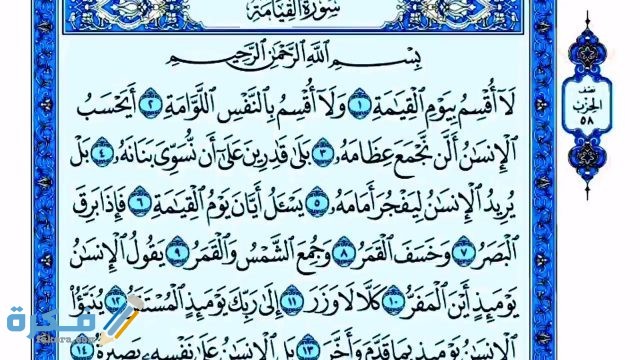 سُورَةُ القِيَامَةِ
بِسْمِ ٱللَّهِ ٱلرَّحْمَٰنِ ٱلرَّحِيمِ
لَآ أُقْسِمُ بِيَوْمِ ٱلْقِيَٰمَةِ ١ وَلَآ أُقْسِمُ بِٱلنَّفْسِ ٱللَّوَّامَةِ ٢ أَيَحْسَبُ
ٱلْإِنسَٰنُ أَلَّن نَّجْمَعَ عِظَامَهُۥ ٣ بَلَىٰ قَٰدِرِينَ عَلَىٰٓ أَن نُّسَوِّىَ بَنَانَهُۥ ٤ بَلْ
يُرِيدُ ٱلْإِنسَٰنُ لِيَفْجُرَ أَمَامَهُۥ ٥ يَسْـَٔلُ أَيَّانَ يَوْمُ ٱلْقِيَٰمَةِ ٦ فَإِذَا بَرِقَ
ٱلْبَصَرُ ٧ وَخَسَفَ ٱلْقَمَرُ ٨ وَجُمِعَ ٱلشَّمْسُ وَٱلْقَمَرُ ٩ يَقُولُ ٱلْإِنسَٰنُ
يَوْمَئِذٍ أَيْنَ ٱلْمَفَرُّ ١٠ كَلَّا لَا وَزَرَ ١١ إِلَىٰ رَبِّكَ يَوْمَئِذٍ ٱلْمُسْتَقَرُّ ١٢ يُنَبَّؤُا۟
ٱلْإِنسَٰنُ يَوْمَئِذٍۭ بِمَا قَدَّمَ وَأَخَّرَ ١٣ بَلِ ٱلْإِنسَٰنُ عَلَىٰ نَفْسِهِۦ بَصِيرَةٌ ١٤
نصف
الحزب
٥٨
فكرة
fekera.com